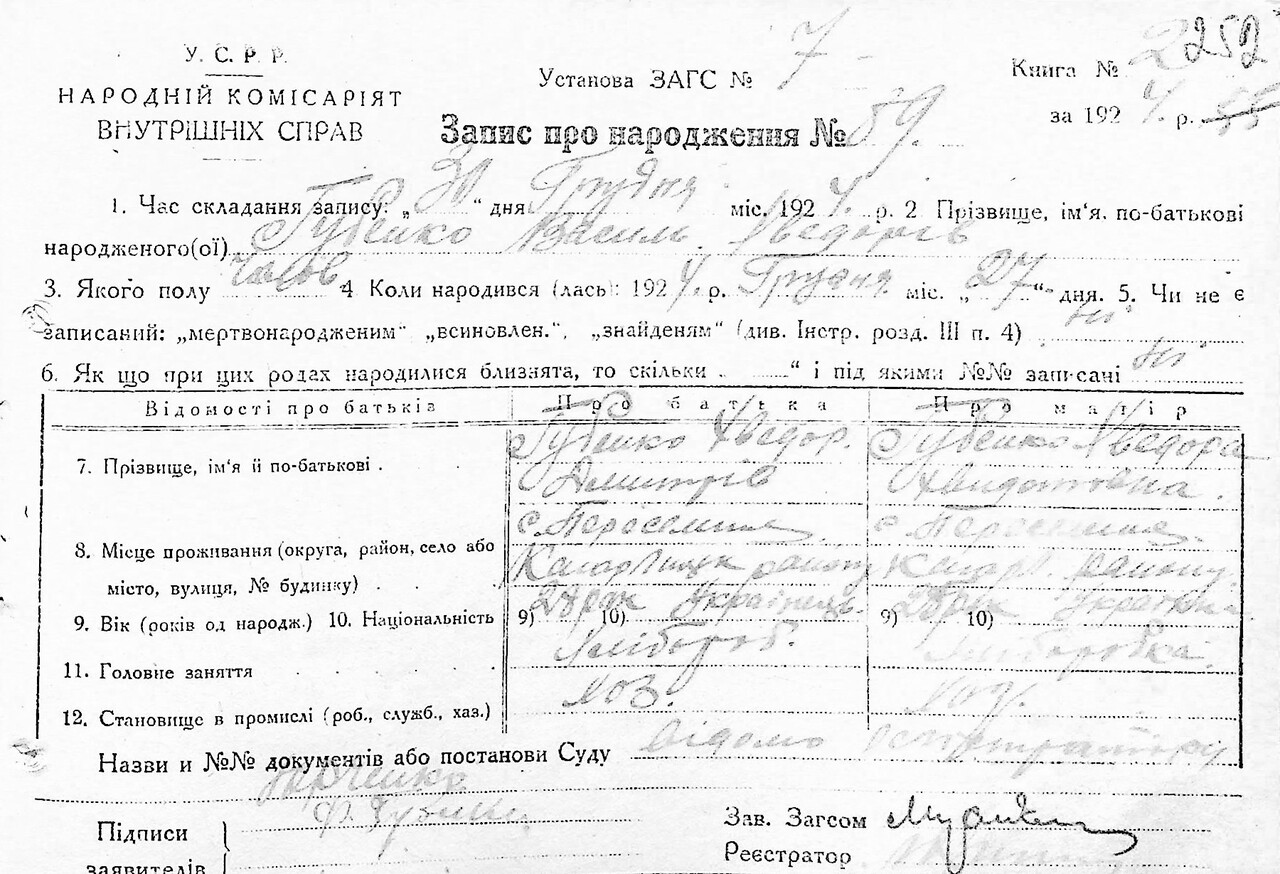 У. С. Р. Р.
НАРОДНІЙ КОМІСАРІЯТ
ВНУТРІШНІХ СПРАВ
Установа ЗАГС № 7
Книга № 252
за 1924 р.
Запис про народження № 89.
1. Час складання запису: „30“ дня Грудня міс. 1924. р. 2 Прізвище, ім‘я, по-батькові
народженого(ої) Губенко Василь Хведорів
3. Якого полу Чолов 4 Коли народився (лась): 1924 р. Грудня міс. „27“ дня. 5. Чи не є
записаний: „мертвонародженим“ „всиновлен.“, „знайденям“ (див. Інстр. розд. III п. 4) ні
6. Як що при цих родах народилися близнята, то скільки „ “ і під якими №№ записані ні
Відомості про батьків Про батька Про матір
7. Прізвище, ім‘я й по-батькові . Губенко Хведор. Губенко Хведора
Дмитрів
с. Переселення с. Переселення
8. Місце проживання (округа, район, село або
місто, вулиця, № будинку) . Кагарлицк району Кагарл. району.
9. Вік (років од народж.) 10. Національність 9) 28 рок 10) Українець. 9) 28 рок 10) Українка
11. Головне заняття Хлібороб. Хлiборобка.
12. Становище в промислі (роб., служб., хаз.) хоз.
Назви и №№ документів або постанови Суду Відомо
Підписи
заявителів
Ф. Губенко
Зав. Загсом
Реєстратор